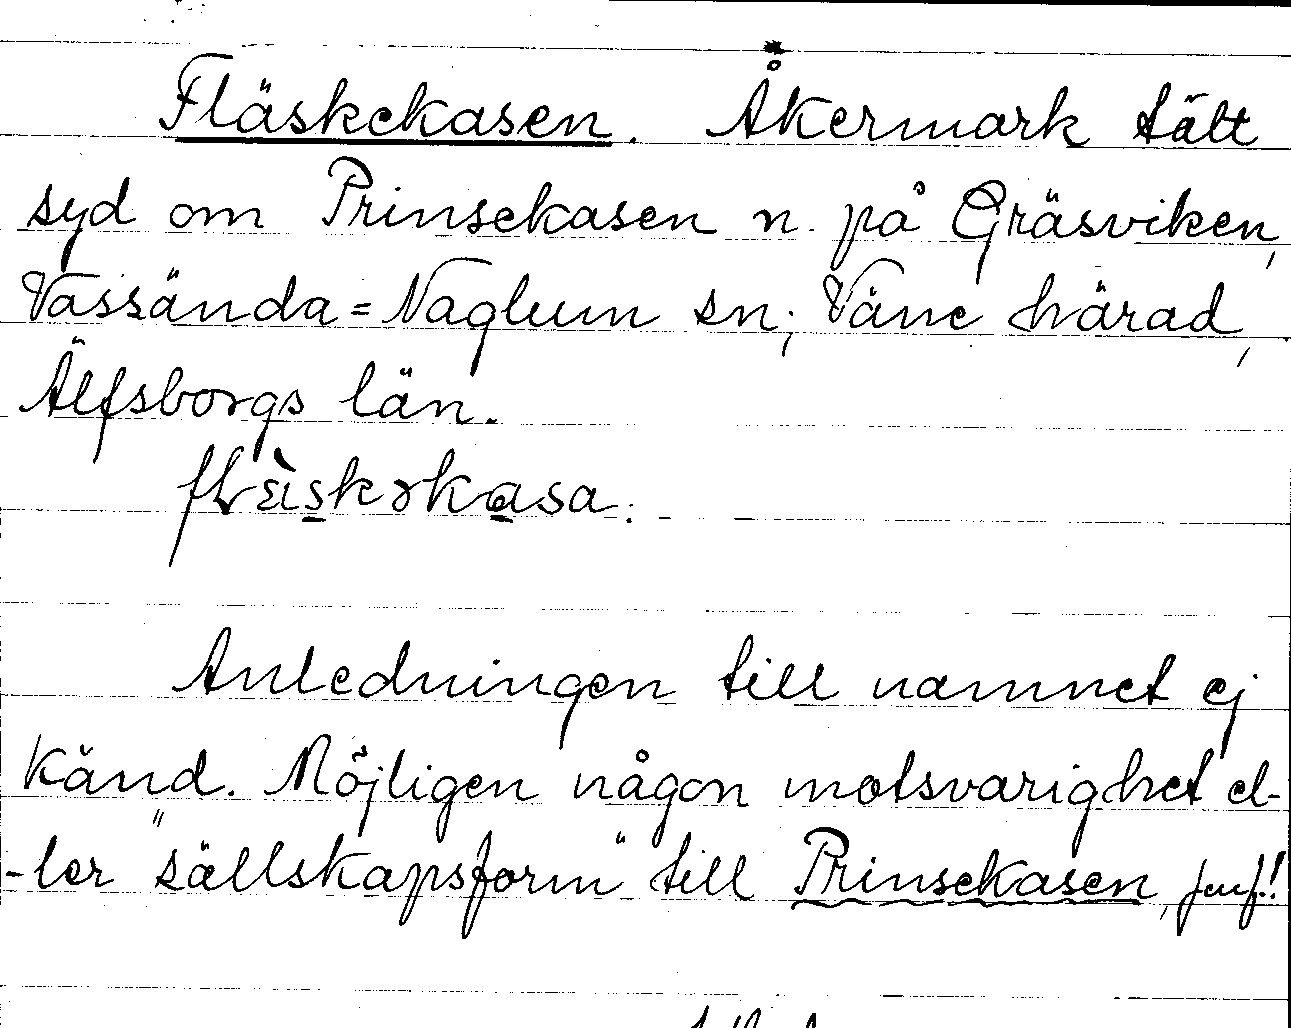 Fläskekasen. Åkermark tätt
syd om Prinsekasen n. på Gräsviken,
Vassända=Naglum sn; Väne härad,
Älfsborgs län.
Anledningen till namnet ej
känd. Möjligen någon motsvarighet el-
-ler "sällskapsform" till Prinsekasen, jmf.!